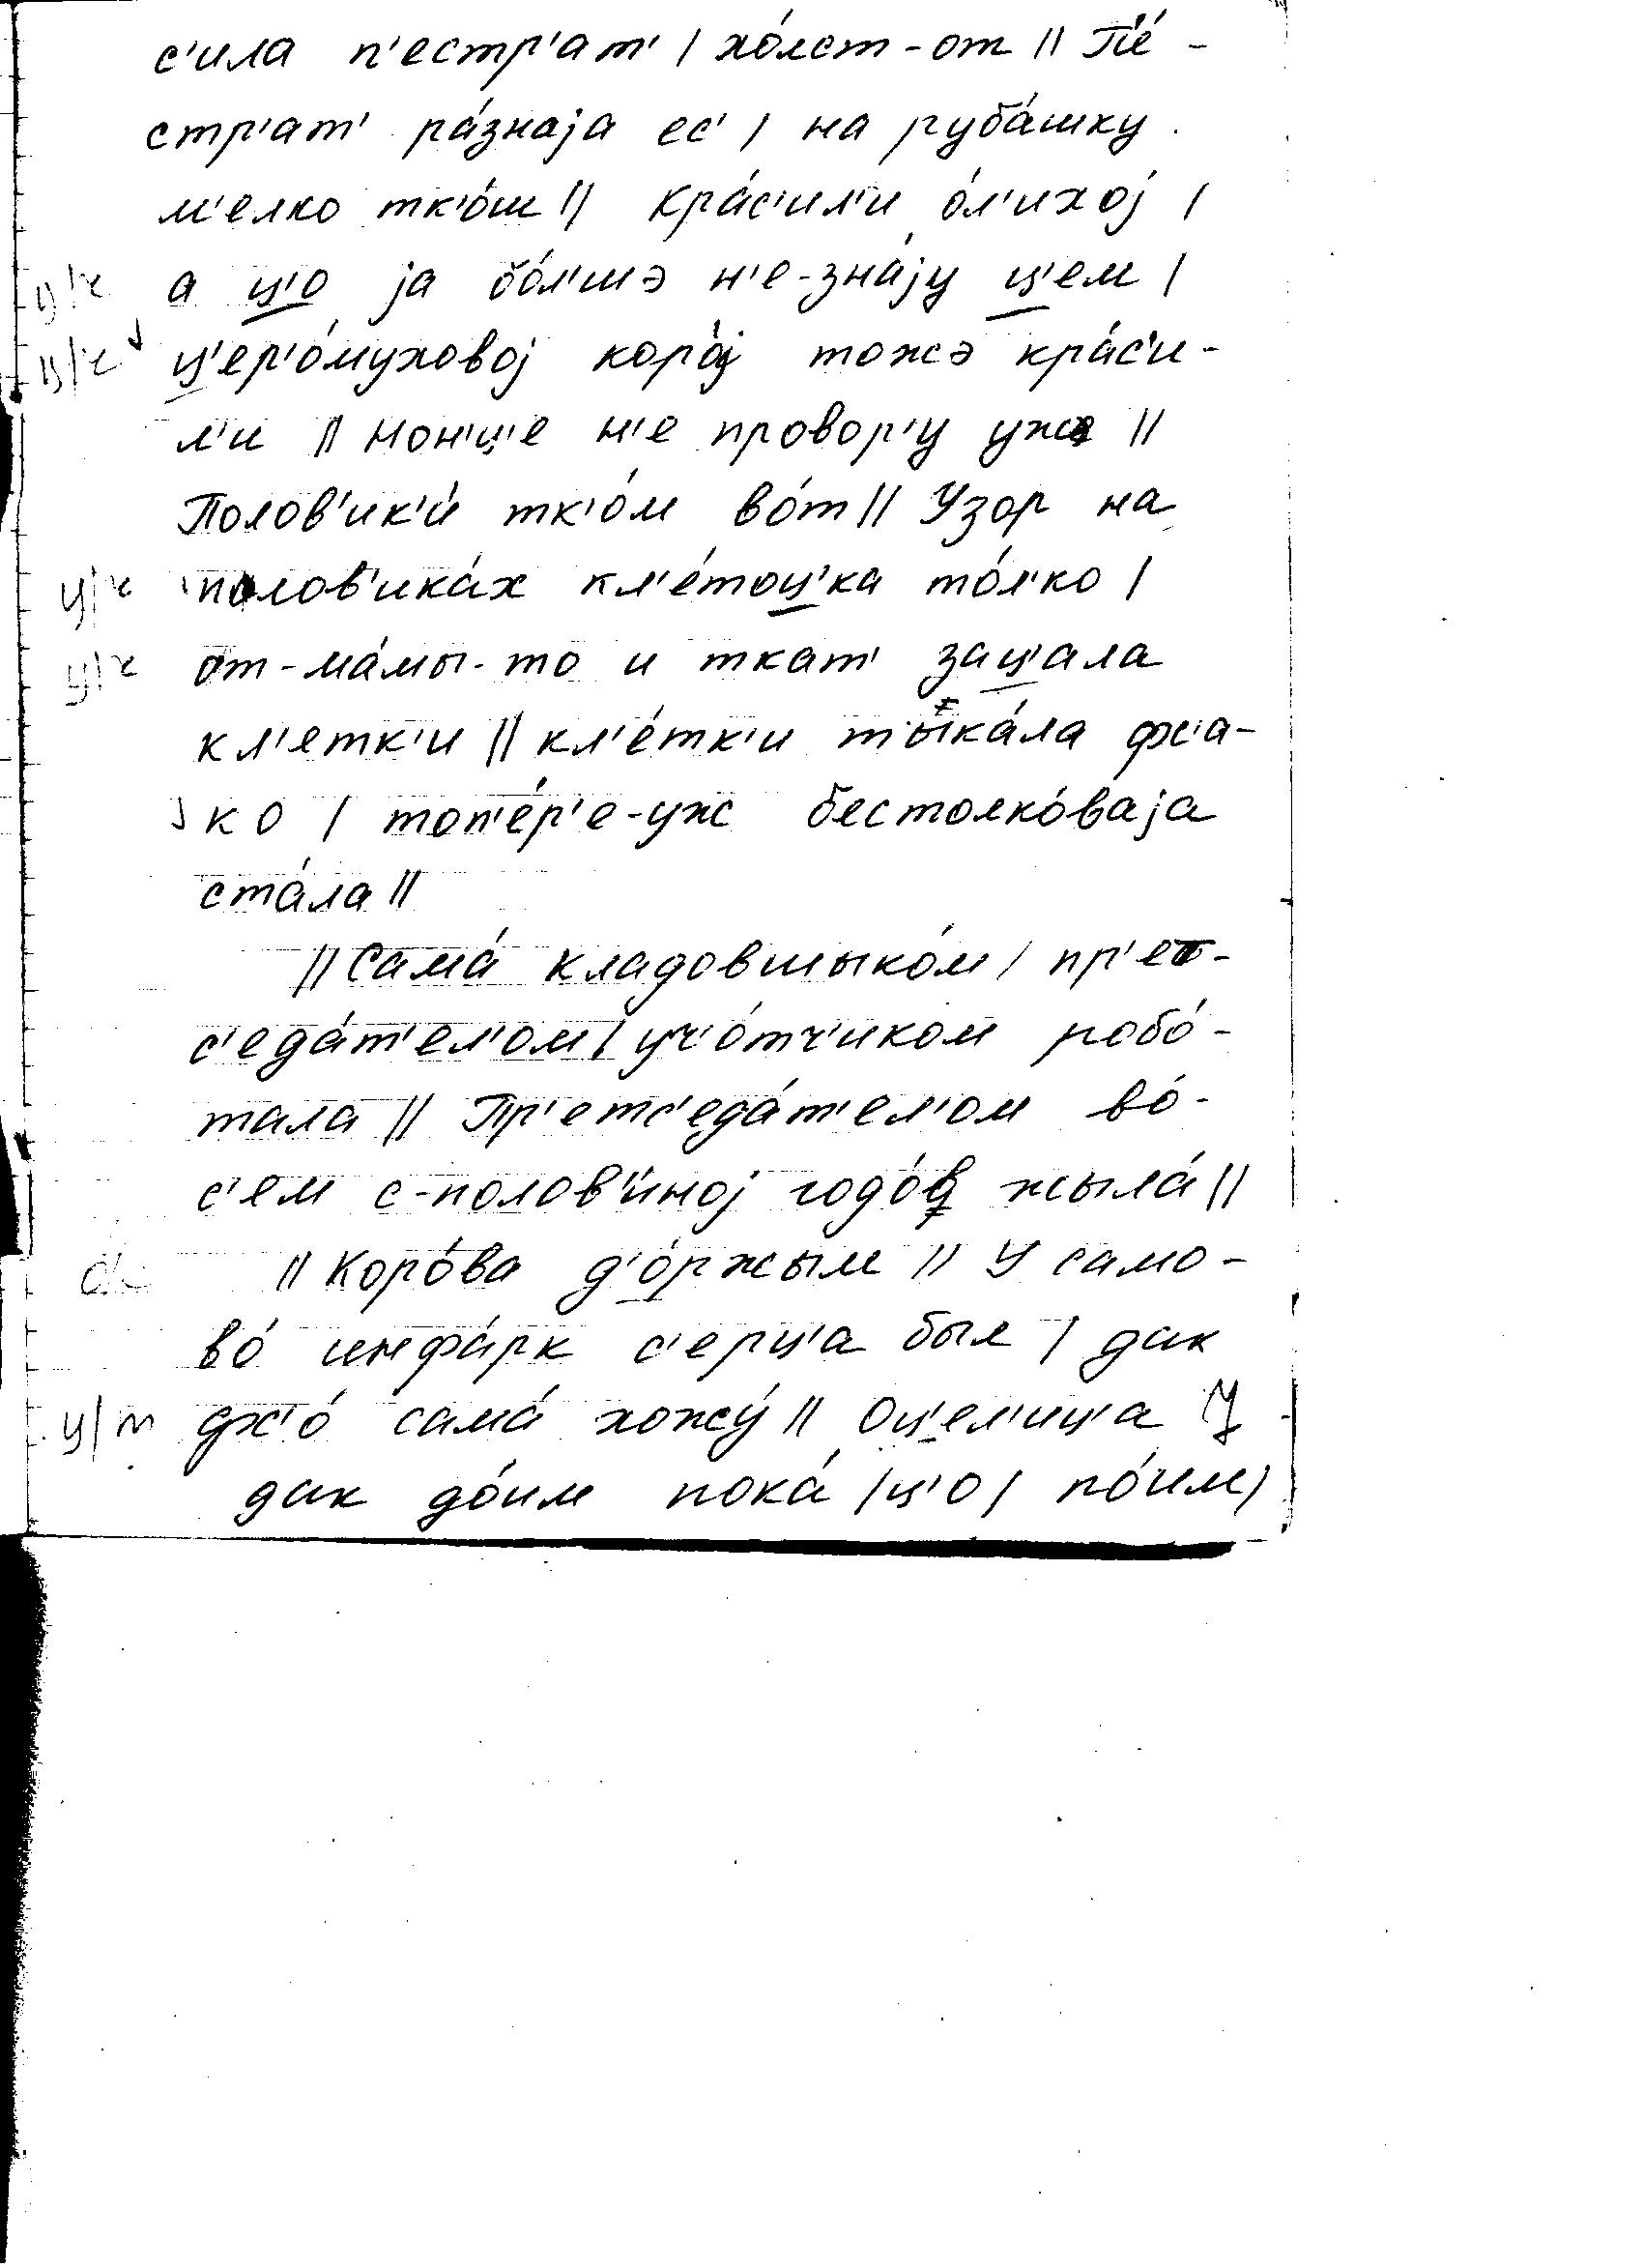 с'ила п'естр'ат' | хо́лст-от || Пе́-
стр'ат' ра́знаја ес' | на руба́шку
м'елко тк'о́ш || кра́с'ил'и о́л'ихој |
ц/ч а ц'о ја бо́л'шэ н'е-зна́ју ц'ем |
ц/ч ц'ер'о́муховој коро́ј тожэ кра́с'и-
л'и || нон'ц'е н'е провор'у ужэ ||
Полов'ик'и́ тк'о́м во́т || Узор на
ц/ч полов'ика́х кл'е́тоц'ка то́л'ко |
ц/ч от-ма́мы-то и ткат' зац'ала
кл'етк'и || кл'е́тк'и ты́ка́ла фс'а-
ко | топ'е́р'е-уж бестолко́ваја
ста́ла ||
|| Сама́ кладовшыко́м | пр'ет-
с'еда́т'ел'ом | уч'о́тч'иком робо́-
тала || Пр'етс'еда́т'ел'ом во́-
с'ем с-полов'и́ној годо́в жыла́ ||
|| Коро́ва д'о́ржым || У само-
во́ инфа́рк с'ерц'а был | дак
фс'о́ сама́ хожу́ || Оц'ел'иц'а
дак до́им пока́ | ц'о | по́им |